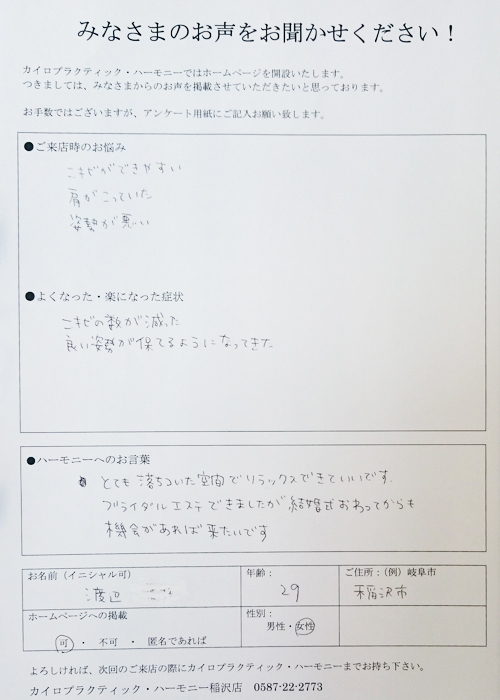 みなさまのお声をお聞かせください！
カイロプラクティック・ハーモニーではホームページを開設いたします。
つきましては、みなさまからのお声を掲載させていただきたいと思っております。
お手数ではございますが、アンケート用紙にご記入お願い致します。
●ご来店時のお悩み
ニキビができやすい
肩がこっていた
姿勢が悪い
●よくなった・楽になった症状
ニキビの数が減った
良い姿勢が保てるようになってきた
●ハーモニーへのお言葉
とても落ちついた空間でリラックスできていいです。
ブライダルエステできましたが結婚式おわってからも
機会があれば来たいです
お名前（イニシャル可）
渡辺
年齢：
29
ご住所：（例）岐阜市
稲沢市
ホームページへの掲載
可 ・ 不可 ・ 匿名であれば
性別：
男性・女性
よろしければ、次回のご来店の際にカイロプラクティック・ハーモニーまでお持ち下さい。
カイロプラクティック・ハーモニー稲沢店 0587-22-2773